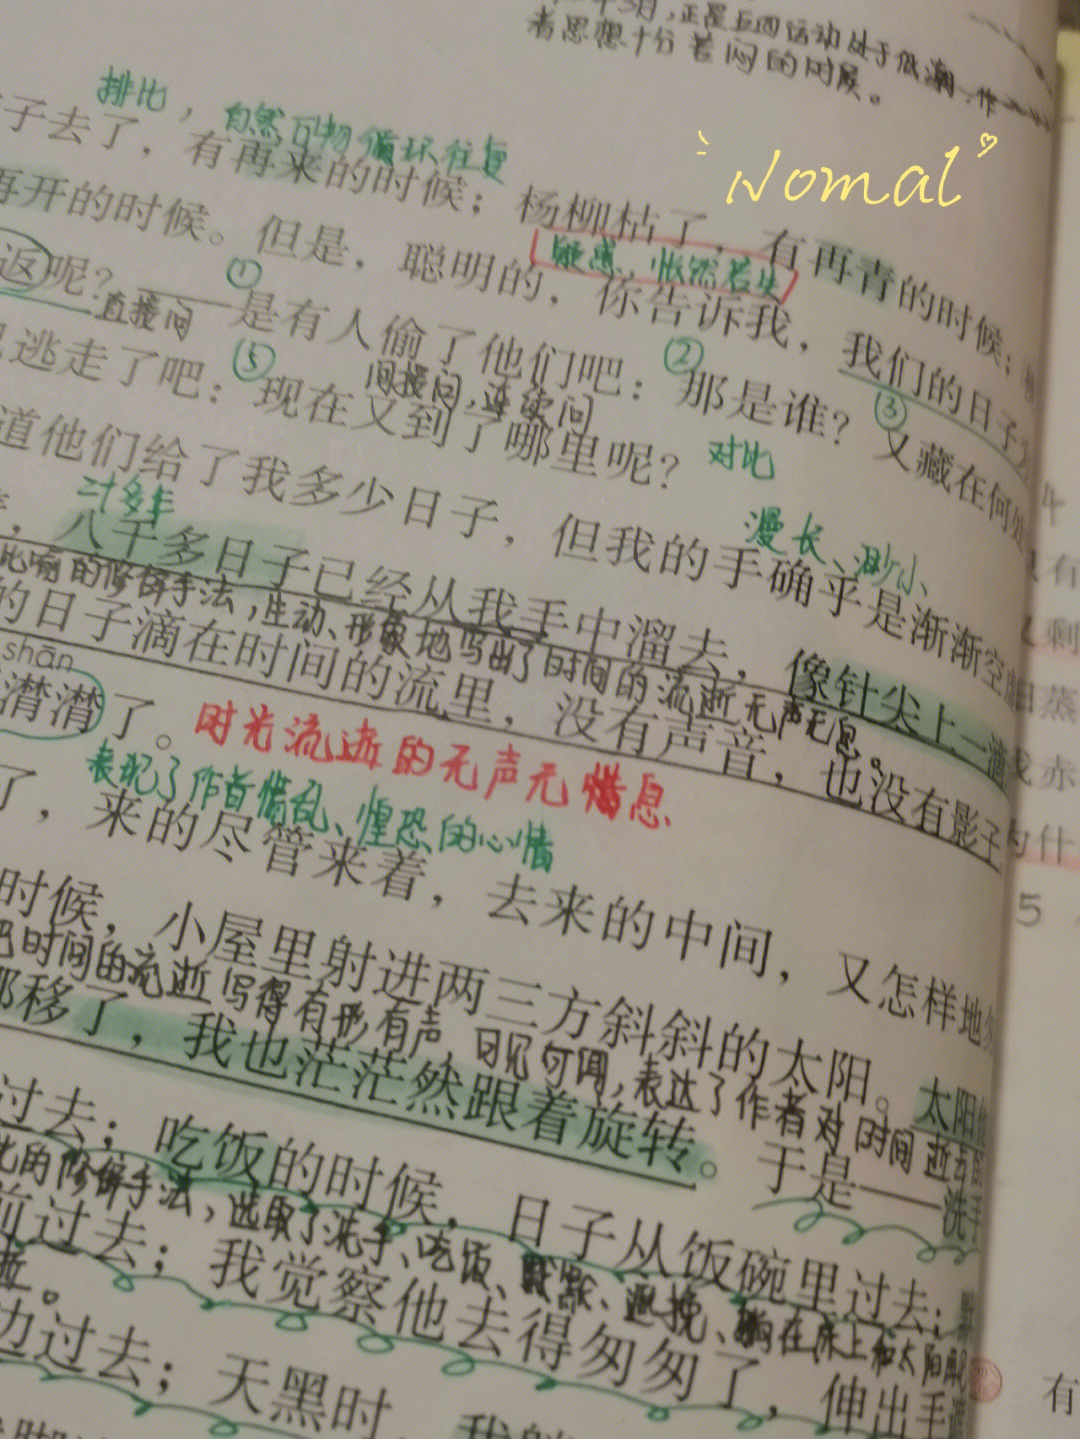 年3月,正是五四运动处于低潮,作
者思想十分苦闷的时候。
Nomal
排比,自然万物循环往复
子去了,有再来的时候;杨柳枯了,有再青的时候;
疑惑,怅然若失
再开的时候。但是,聪明的,你告诉我,我们的日子
① ② ③
返呢?——是有人偷了他们吧:那是谁?又藏在何处
直接问
⑤
间接问,连续问
逃走了吧:现在又到了哪里呢?
对比
道他们给了我多少日子,但我的手确乎是渐渐空虚
二十多年
漫长、渺小
,八千多日子已经从我手中溜去,像针尖上一滴
比喻的修辞手法,生动、形象地写出了时间的流逝无声无息。
的日子滴在时间的流里,没有声音,也没有影子
shān
潸潸了。
时光流逝的无声无息
表现了作者慌乱、惶恐的心情
了,来的尽管来着,去来的中间,又怎样地
时候,小屋里射进两三方斜斜的太阳。太阳他
把时间的流逝写得有形有声,可见可闻,表达了作者对时间逝去的
那移了,我也茫茫然跟着旋转。于是——洗手
过去;吃饭的时候,日子从饭碗里过去;
比的修辞手法,选取了洗手、吃饭、默默、遮挽、躺在床上和太阳再见
前过去;我觉察他去得匆匆了,伸出手遮
逝。
边过去;天黑时,我躺
有
剩
蒸
赤
为什
5
有